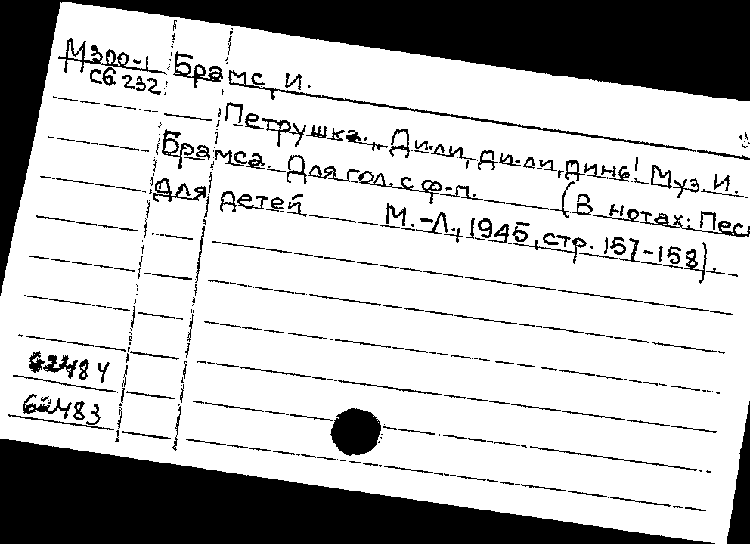 М300-1
Сб 232
Брамс, И.
Петрушка. „Ди-ли, ди-ли, динь! Муз. И.
Брамса. Для гол. с ф-п. (В нотах: Пес
для детей М.-Л., 1945, стр. 157-158).
62484
62483